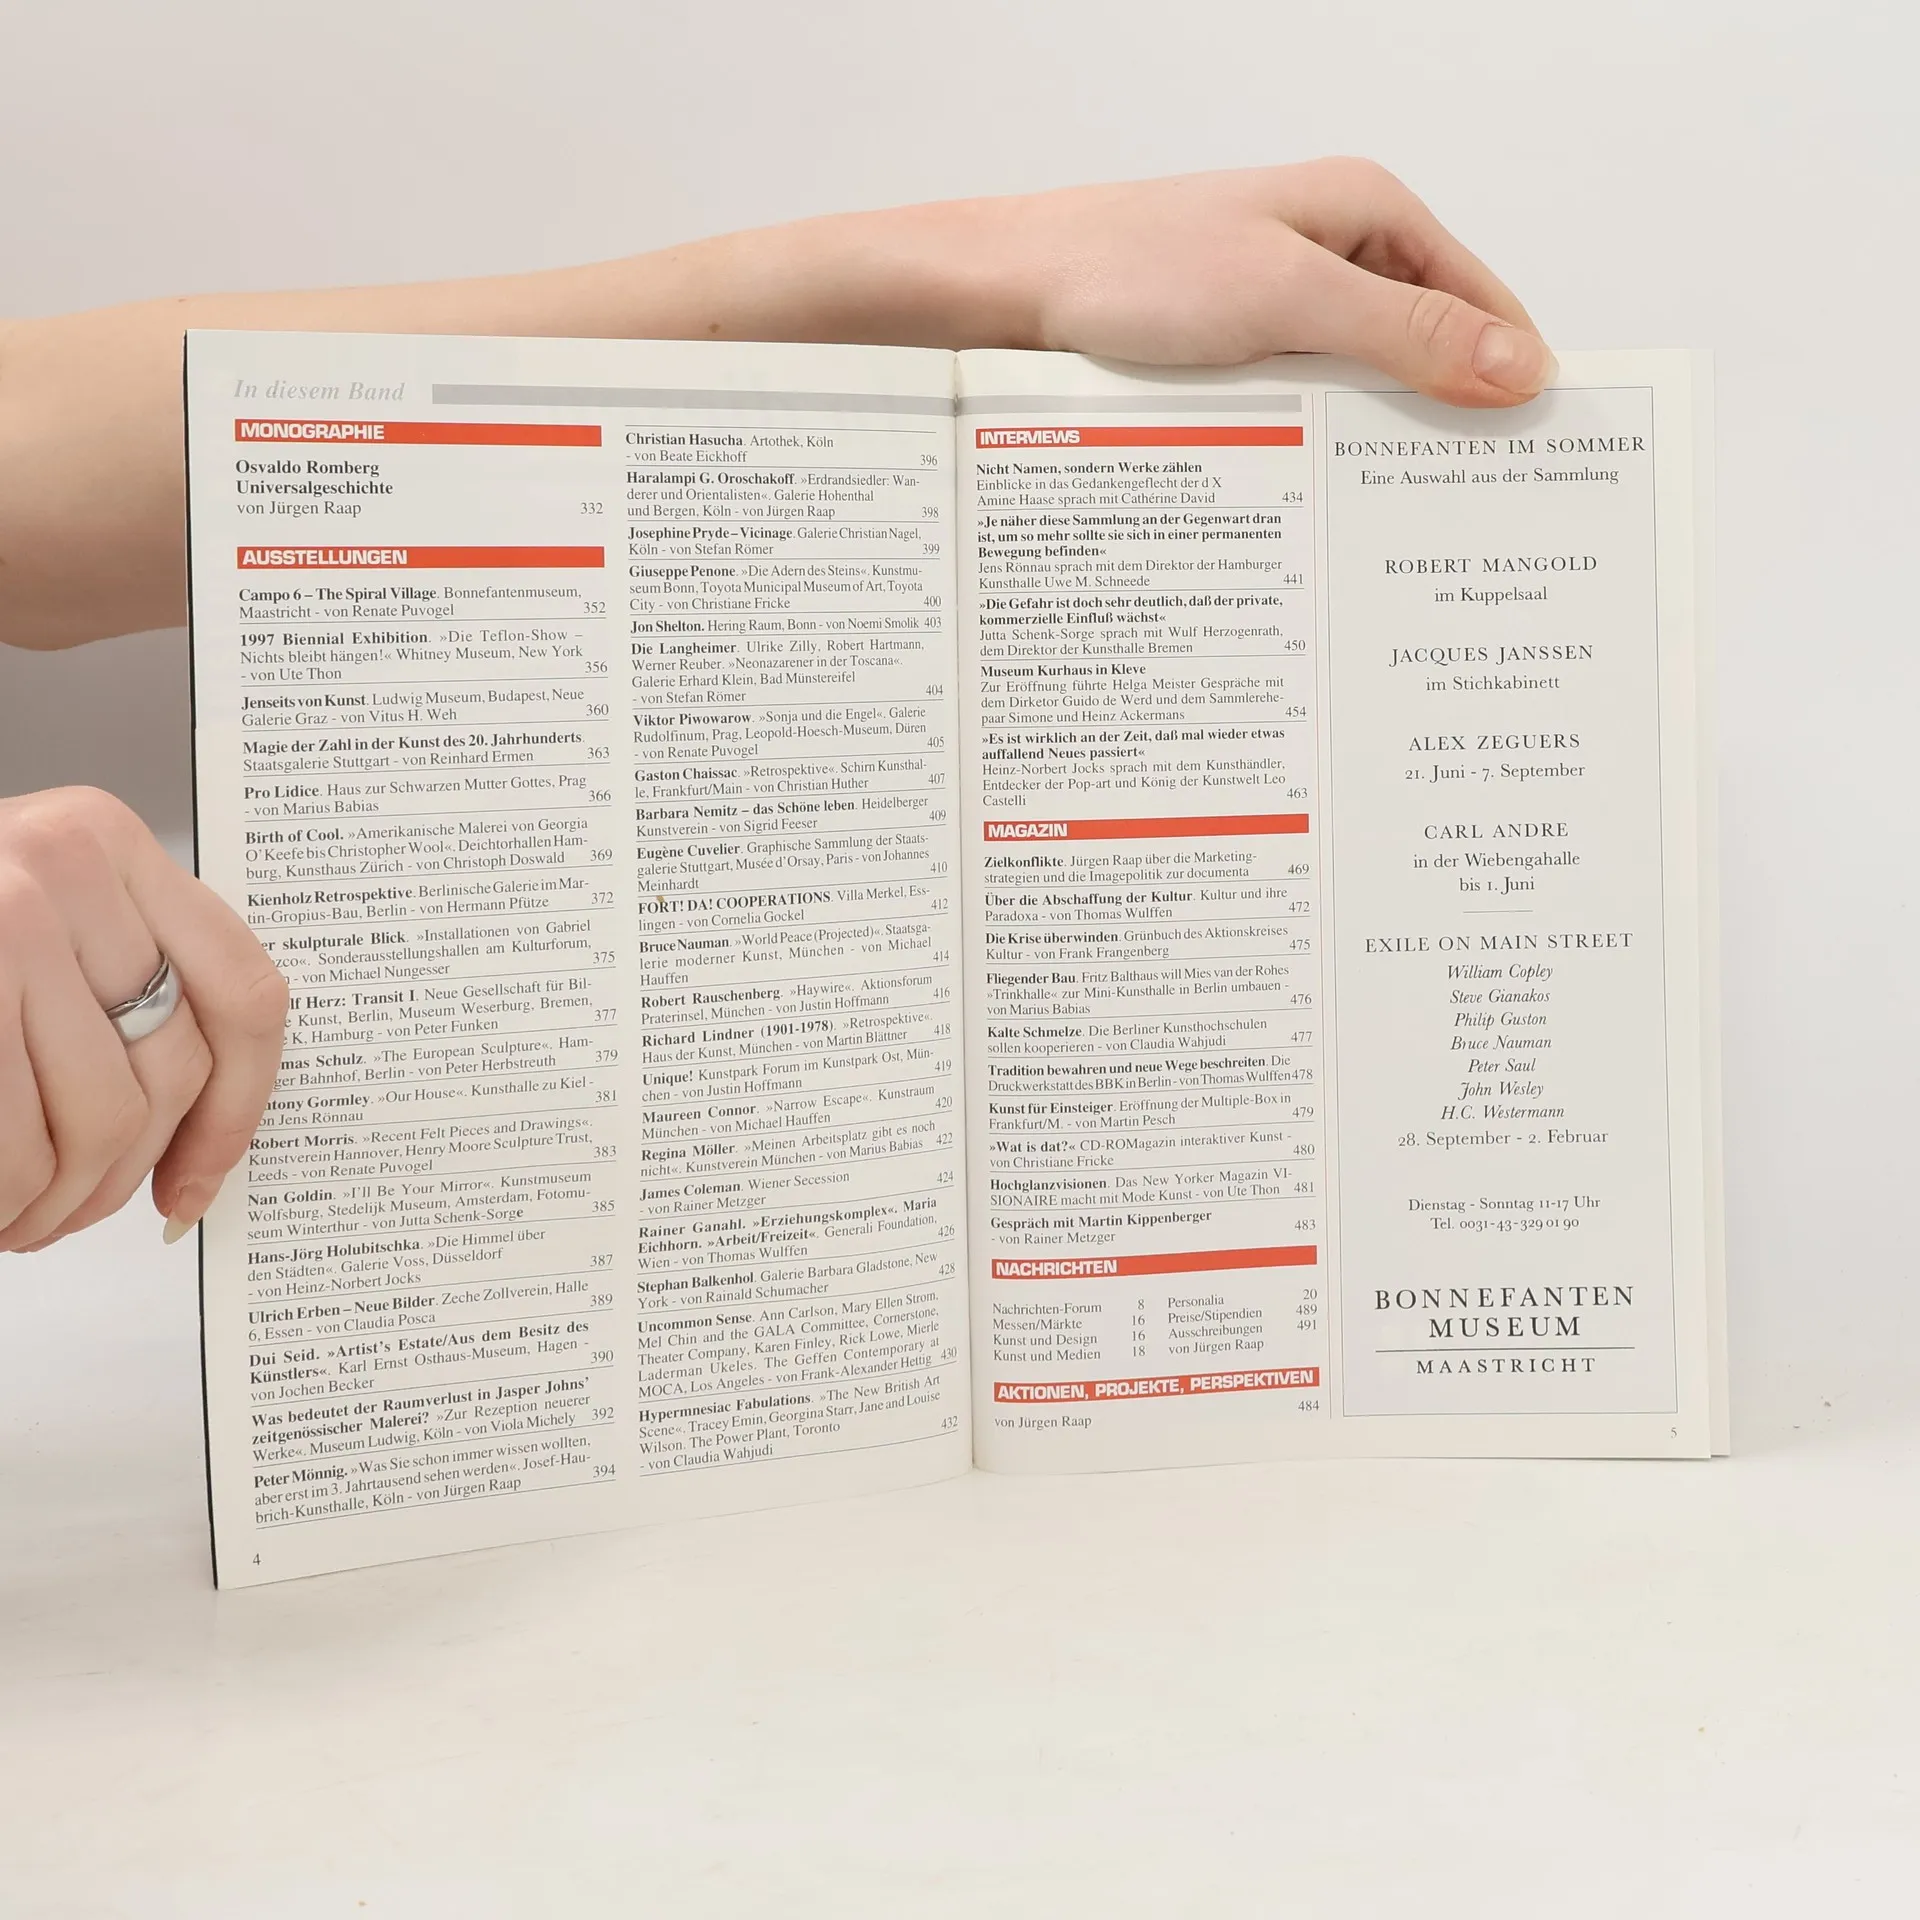 In diesem Band
MONOGRAPHIE
Osvaldo Romberg
Universalgeschichte
von Jürgen Raap 332
AUSSTELLUNGEN
Campo 6 – The Spiral Village. Bonnefantenmuseum,
Maastricht - von Renate Puvogel 352
1997 Biennial Exhibition. »Die Teflon-Show –
Nichts bleibt hängen!« Whitney Museum, New York
- von Ute Thon 356
Jenseits von Kunst. Ludwig Museum, Budapest, Neue
Galerie Graz - von Vitus H. Weh 360
Magie der Zahl in der Kunst des 20. Jahrhunderts.
Staatsgalerie Stuttgart - von Reinhard Ermen 363
Pro Lidice. Haus zur Schwarzen Mutter Gottes, Prag
- von Marius Babias 366
Birth of Cool. »Amerikanische Malerei von Georgia
O'Keefe bis Christopher Wool«. Deichtorhallen Ham-
burg, Kunsthaus Zürich - von Christoph Doswald 369
Kienholz Retrospektive. Berlinische Galerie im Mar-
tin-Gropius-Bau, Berlin - von Hermann Pfütze 372
skulpturale Blick. »Installationen von Gabriel
Sonderausstellungshallen am Kulturforum,
- von Michael Nungesser 375
Herz: Transit I. Neue Gesellschaft für Bil-
Kunst, Berlin, Museum Weserburg, Bremen,
K, Hamburg - von Peter Funken 377
Schulz. »The European Sculpture«. Ham-
Bahnhof, Berlin - von Peter Herbstreuth 379
Gormley. »Our House«. Kunsthalle zu Kiel -
Jens Rönnau 381
Robert Morris. »Recent Felt Pieces and Drawings«.
Kunstverein Hannover, Henry Moore Sculpture Trust,
Leeds - von Renate Puvogel 383
Nan Goldin. »I'll Be Your Mirror«. Kunstmuseum
Wolfsburg, Stedelijk Museum, Amsterdam, Fotomu-
seum Winterthur - von Jutta Schenk-Sorge 385
Hans-Jörg Holubitschka. »Die Himmel über
den Städten«. Galerie Voss, Düsseldorf
- von Heinz-Norbert Jocks 387
Ulrich Erben – Neue Bilder. Zeche Zollverein, Halle
6, Essen - von Claudia Posca 389
Dui Seid. »Artist's Estate/Aus dem Besitz des
Künstlers«. Karl Ernst Osthaus-Museum, Hagen -
von Jochen Becker 390
Was bedeutet der Raumverlust in Jasper Johns'
zeitgenössischer Malerei? »Zur Rezeption neuerer
Werke«. Museum Ludwig, Köln - von Viola Michely 392
Peter Mönnig. »Was Sie schon immer wissen wollten,
aber erst im 3. Jahrtausend sehen werden«. Josef-Hau-
brich-Kunsthalle, Köln - von Jürgen Raap 394
4
Christian Hasucha. Artothek, Köln
- von Beate Eickhoff 396
Haralampi G. Oroschakoff. »Erdrandsiedler: Wan-
derer und Orientalisten«. Galerie Hohenthal
und Bergen, Köln - von Jürgen Raap 398
Josephine Pryde – Vicinage. Galerie Christian Nagel,
Köln - von Stefan Römer 399
Giuseppe Penone. »Die Adern des Steins«. Kunstmu-
seum Bonn, Toyota Municipal Museum of Art, Toyota
City - von Christiane Fricke 400
Jon Shelton. Hering Raum, Bonn - von Noemi Smolik 403
Die Langheimer. Ulrike Zilly, Robert Hartmann,
Werner Reuber. »Neonazarener in der Toscana«.
Galerie Erhard Klein, Bad Münstereifel
- von Stefan Römer 404
Viktor Piwowarow. »Sonja und die Engel«. Galerie
Rudolfinum, Prag, Leopold-Hoesch-Museum, Düren
- von Renate Puvogel 405
Gaston Chaissac. »Retrospektive«. Schirn Kunsthal-
le, Frankfurt/Main - von Christian Huther 407
Barbara Nemitz – das Schöne leben. Heidelberger
Kunstverein - von Sigrid Feeser 409
Eugène Cuvelier. Graphische Sammlung der Staats-
galerie Stuttgart, Musée d'Orsay, Paris - von Johannes
Meinhardt 410
FORT! DA! COOPERATIONS. Villa Merkel, Ess-
lingen - von Cornelia Gockel 412
Bruce Nauman. »World Peace (Projected)«. Staatsga-
lerie moderner Kunst, München - von Michael
Hauffen 414
Robert Rauschenberg. »Haywire«. Aktionsforum
Praterinsel, München - von Justin Hoffmann 416
Richard Lindner (1901-1978). »Retrospektive«.
Haus der Kunst, München - von Martin Blättner 418
Unique! Kunstpark Forum im Kunstpark Ost, Mün-
chen - von Justin Hoffmann 419
Maureen Connor. »Narrow Escape«. Kunstraum
München - von Michael Hauffen 420
Regina Möller. »Meinen Arbeitsplatz gibt es noch
nicht«. Kunstverein München - von Marius Babias 422
James Coleman. Wiener Secession
- von Rainer Metzger 424
Rainer Ganahl. »Erziehungskomplex«. Maria
Eichhorn. »Arbeit/Freizeit«. Generali Foundation,
Wien - von Thomas Wulffen 426
Stephan Balkenhol. Galerie Barbara Gladstone, New
York - von Rainald Schumacher 428
Uncommon Sense. Ann Carlson, Mary Ellen Strom,
Mel Chin and the GALA Committee, Cornerstone,
Theater Company, Karen Finley, Rick Lowe, Mierle
Laderman Ukeles. The Geffen Contemporary at
MOCA, Los Angeles - von Frank-Alexander Hettig 430
Hypermnesiac Fabulations. »The New British Art
Scene«. Tracey Emin, Georgina Starr, Jane and Louise
Wilson. The Power Plant, Toronto
- von Claudia Wahjudi 432
INTERVIEWS
Nicht Namen, sondern Werke zählen
Einblicke in das Gedankengeflecht der d X
Amine Haase sprach mit Cathérine David 434
»Je näher diese Sammlung an der Gegenwart dran
ist, um so mehr sollte sie sich in einer permanenten
Bewegung befinden«
Jens Rönnau sprach mit dem Direktor der Hamburger
Kunsthalle Uwe M. Schneede 441
»Die Gefahr ist doch sehr deutlich, daß der private,
kommerzielle Einfluß wächst«
Jutta Schenk-Sorge sprach mit Wulf Herzogenrath,
dem Direktor der Kunsthalle Bremen 450
Museum Kurhaus in Kleve
Zur Eröffnung führte Helga Meister Gespräche mit
dem Dirketor Guido de Werd und dem Sammlerehe-
paar Simone und Heinz Ackermans 454
»Es ist wirklich an der Zeit, daß mal wieder etwas
auffallend Neues passiert«
Heinz-Norbert Jocks sprach mit dem Kunsthändler,
Entdecker der Pop-art und König der Kunstwelt Leo
Castelli 463
MAGAZIN
Zielkonflikte. Jürgen Raap über die Marketing-
strategien und die Imagepolitik zur documenta 469
Über die Abschaffung der Kultur. Kultur und ihre
Paradoxa - von Thomas Wulffen 472
Die Krise überwinden. Grünbuch des Aktionskreises
Kultur - von Frank Frangenberg 475
Fliegender Bau. Fritz Balthaus will Mies van der Rohes
»Trinkhalle« zur Mini-Kunsthalle in Berlin umbauen -
von Marius Babias 476
Kalte Schmelze. Die Berliner Kunsthochschulen
sollen kooperieren - von Claudia Wahjudi 477
Tradition bewahren und neue Wege beschreiten. Die
Druckwerkstatt des BBK in Berlin - von Thomas Wulffen 478
Kunst für Einsteiger. Eröffnung der Multiple-Box in
Frankfurt/M. - von Martin Pesch 479
»Wat is dat?« CD-ROMagazin interaktiver Kunst -
von Christiane Fricke 480
Hochglanzvisionen. Das New Yorker Magazin VI-
SIONAIRE macht mit Mode Kunst - von Ute Thon 481
Gespräch mit Martin Kippenberger
- von Rainer Metzger 483
NACHRICHTEN
Nachrichten-Forum 8
Messen/Märkte 16
Kunst und Design 16
Kunst und Medien 18
Personalia 20
Preise/Stipendien 489
Ausschreibungen 491
von Jürgen Raap
AKTIONEN, PROJEKTE, PERSPEKTIVEN
von Jürgen Raap 484
BONNEFANTEN IM SOMMER
Eine Auswahl aus der Sammlung
ROBERT MANGOLD
im Kuppelsaal
JACQUES JANSSEN
im Stichkabinett
ALEX ZEGUERS
21. Juni - 7. September
CARL ANDRE
in der Wiebengahalle
bis 1. Juni
EXILE ON MAIN STREET
William Copley
Steve Gianakos
Philip Guston
Bruce Nauman
Peter Saul
John Wesley
H.C. Westermann
28. September - 2. Februar
Dienstag - Sonntag 11-17 Uhr
Tel. 0031-43-329 01 90
BONNEFANTEN
MUSEUM
MAASTRICHT
5